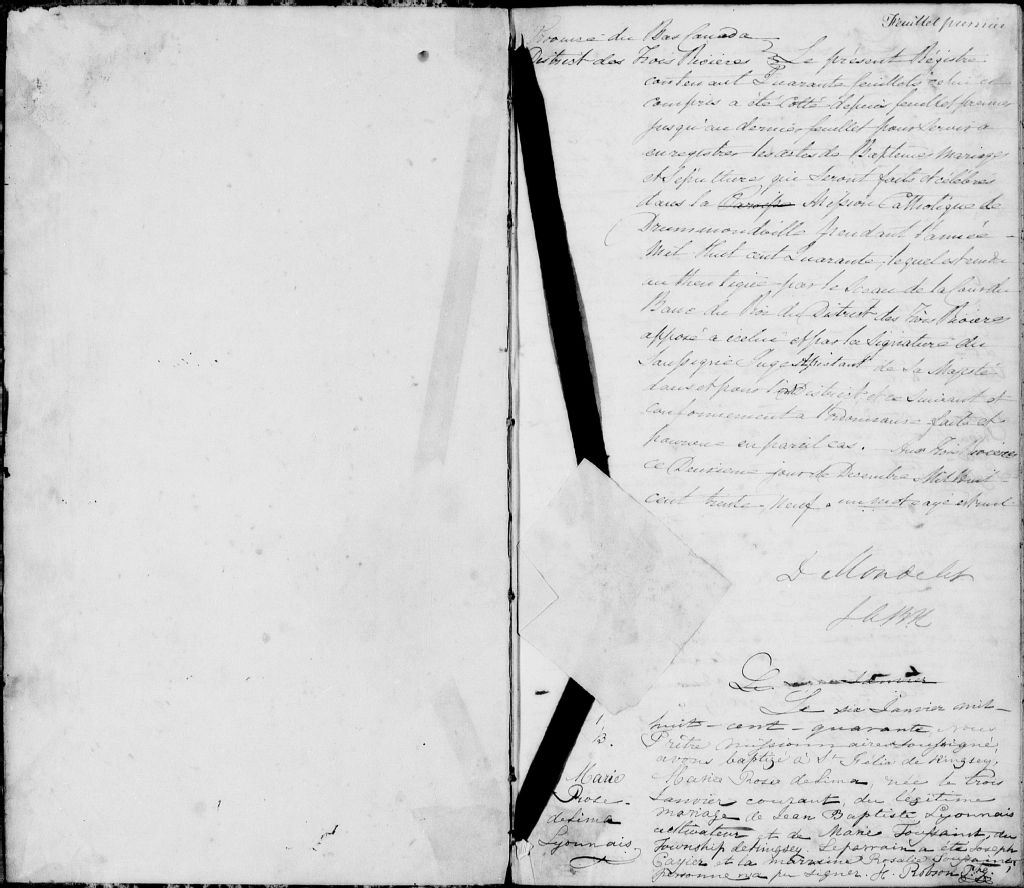 Feuillet premier
Province du Bas Canada
District des Trois Rivieres } Le présent Régistre
contenant Quarante feuillets celui ci
compris a été Cotté depuis feuillet premier
jusqu'au dernier feuillet pour servir a
enregistrer les actes de Baptêmes Mariages
et Sépultures qui seront faits et célébrés
dans la Paroisse Mission Catholique de
Drummondville pendant l'année
Mil Huit cent Quarante, lequel est rendu
authentique par le Sceau de la Cour du
Banc du Roi du District des Trois Rivieres
apposé a icelui et par la Signature du
Soussigné Juge Assistant de Sa Majesté
dans et pour District et ce Suivant et
conformement a l'Ordonnance faite et
pourvue en pareil cas. Aux Trois Rivieres
ce Deuxieme jour de Decembre Mil Huit
cent trente Neuf. un mot rayé est nul
D Mondelet
Le Janvier
Le six Janvier mil-
huit-cent-quarante Nous
Prêtre missionnaire soussigné
avons baptizé à St Félix de Kingsey,
Marie Rose de Lima, née le trois
Janvier courant, du légitime
mariage de Jean Baptiste Lyonnais
cultivateur et de Marie Toussaint, du
Township de Kingsey. Le parrain a été Joseph
Cayier et la marraine Rosalie Toussaint
personne n'a pu signer. H. Robson Ptre
B.
Marie
Rose
de Lima
Lyonnais